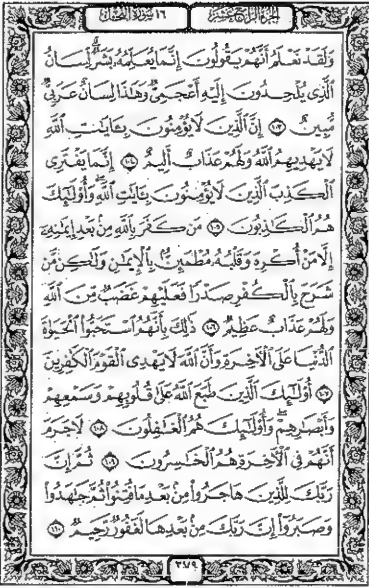 الجزء الرابع عشر
١٦ سورة النحل
وَلَقَدْ نَعْلَمُ أَنَّهُمْ يَقُولُونَ إِنَّمَا يُعَلِّمُهُۥ بَشَرٌ ۗ لِّسَانُ
ٱلَّذِى يُلْحِدُونَ إِلَيْهِ أَعْجَمِىٌّ وَهَٰذَا لِسَانٌ عَرَبِىٌّ
مُّبِينٌ ١٠٣ إِنَّ ٱلَّذِينَ لَا يُؤْمِنُونَ بِـَٔايَٰتِ ٱللَّهِ
لَا يَهْدِيهِمُ ٱللَّهُ وَلَهُمْ عَذَابٌ أَلِيمٌ ١٠٤ إِنَّمَا يَفْتَرِى
ٱلْكَذِبَ ٱلَّذِينَ لَا يُؤْمِنُونَ بِـَٔايَٰتِ ٱللَّهِ ۖ وَأُو۟لَٰٓئِكَ
هُمُ ٱلْكَٰذِبُونَ ١٠٥ مَن كَفَرَ بِٱللَّهِ مِنۢ بَعْدِ إِيمَٰنِهِۦٓ
إِلَّا مَنْ أُكْرِهَ وَقَلْبُهُۥ مُطْمَئِنٌّۢ بِٱلْإِيمَٰنِ وَلَٰكِن مَّن
شَرَحَ بِٱلْكُفْرِ صَدْرًا فَعَلَيْهِمْ غَضَبٌ مِّنَ ٱللَّهِ
وَلَهُمْ عَذَابٌ عَظِيمٌ ١٠٦ ذَٰلِكَ بِأَنَّهُمُ ٱسْتَحَبُّوا۟ ٱلْحَيَوٰةَ
ٱلدُّنْيَا عَلَى ٱلْءَاخِرَةِ وَأَنَّ ٱللَّهَ لَا يَهْدِى ٱلْقَوْمَ ٱلْكَٰفِرِينَ
١٠٧ أُو۟لَٰٓئِكَ ٱلَّذِينَ طَبَعَ ٱللَّهُ عَلَىٰ قُلُوبِهِمْ وَسَمْعِهِمْ
وَأَبْصَٰرِهِمْ ۖ وَأُو۟لَٰٓئِكَ هُمُ ٱلْغَٰفِلُونَ ١٠٨ لَا جَرَمَ
أَنَّهُمْ فِى ٱلْءَاخِرَةِ هُمُ ٱلْخَٰسِرُونَ ١٠٩ ثُمَّ إِنَّ
رَبَّكَ لِلَّذِينَ هَاجَرُوا۟ مِنۢ بَعْدِ مَا فُتِنُوا۟ ثُمَّ جَٰهَدُوا۟
وَصَبَرُوٓا۟ إِنَّ رَبَّكَ مِنۢ بَعْدِهَا لَغَفُورٌ رَّحِيمٌ ١١٠
٢٧٩